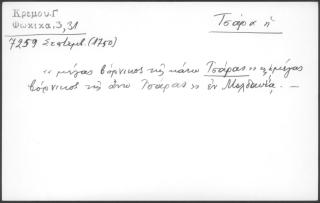 Κρεμου.Γ
Φωκικα.3,31
Τσάρα ἡ
7259 Σεπτεμβ. (1750)
«μέγας βόρνικος τῆς κάτω Τσάρας» μέγας
βόρνικος τῆς ἄνω Τσαρας» ἐν Μολδαυίᾳ. —